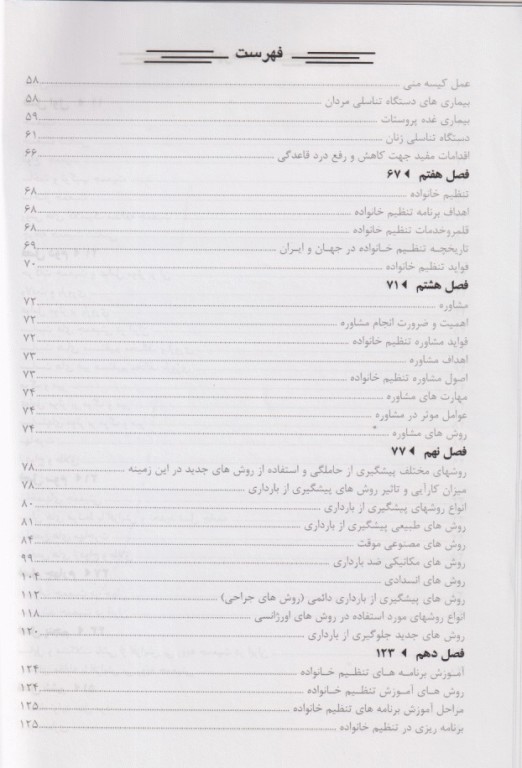 فهرست
عمل کیسه منی ۵۸
بیماری های دستگاه تناسلی مردان ۵۸
بیماری غده پروستات ۵۹
دستگاه تناسلی زنان ۶۱
اقدامات مفید جهت کاهش و رفع درد قاعدگی ۶۶
فصل هفتم ۶۷
تنظیم خانواده ۶۸
اهداف برنامه تنظیم خانواده ۶۸
قلمروخدمات تنظیم خانواده ۶۸
تاریخچه تنظیم خانواده در جهان و ایران ۶۹
فواید تنظیم خانواده ۷۰
فصل هشتم ۷۱
مشاوره ۷۲
اهمیت و ضرورت انجام مشاوره ۷۲
فواید مشاوره تنظیم خانواده ۷۲
اهداف مشاوره ۷۳
اصول مشاوره تنظیم خانواده ۷۳
مهارت های مشاوره ۷۴
عوامل موثر در مشاوره ۷۴
روش های مشاوره ۷۴
فصل نهم ۷۷
روشهای مختلف پیشگیری از حاملگی و استفاده از روش های جدید در این زمینه ۷۸
میزان کارآیی و تاثیر روش های پیشگیری از بارداری ۷۸
انواع روشهای پیشگیری از بارداری ۸۰
روش های طبیعی پیشگیری از بارداری ۸۱
روش های مصنوعی موقت ۸۴
روش های مکانیکی ضد بارداری ۹۹
روش های انسدادی ۱۰۴
روش های پیشگیری از بارداری دائمی (روش های جراحی) ۱۱۲
انواع روشهای مورد استفاده در روش های اورژانسی ۱۱۸
روش های جدید جلوگیری از بارداری ۱۲۰
فصل دهم ۱۲۳
آموزش برنامه های تنظیم خانواده ۱۲۴
روش های آموزش تنظیم خانواده ۱۲۴
مراحل آموزش برنامه های تنظیم خانواده ۱۲۵
برنامه ریزی در تنظیم خانواده ۱۲۵